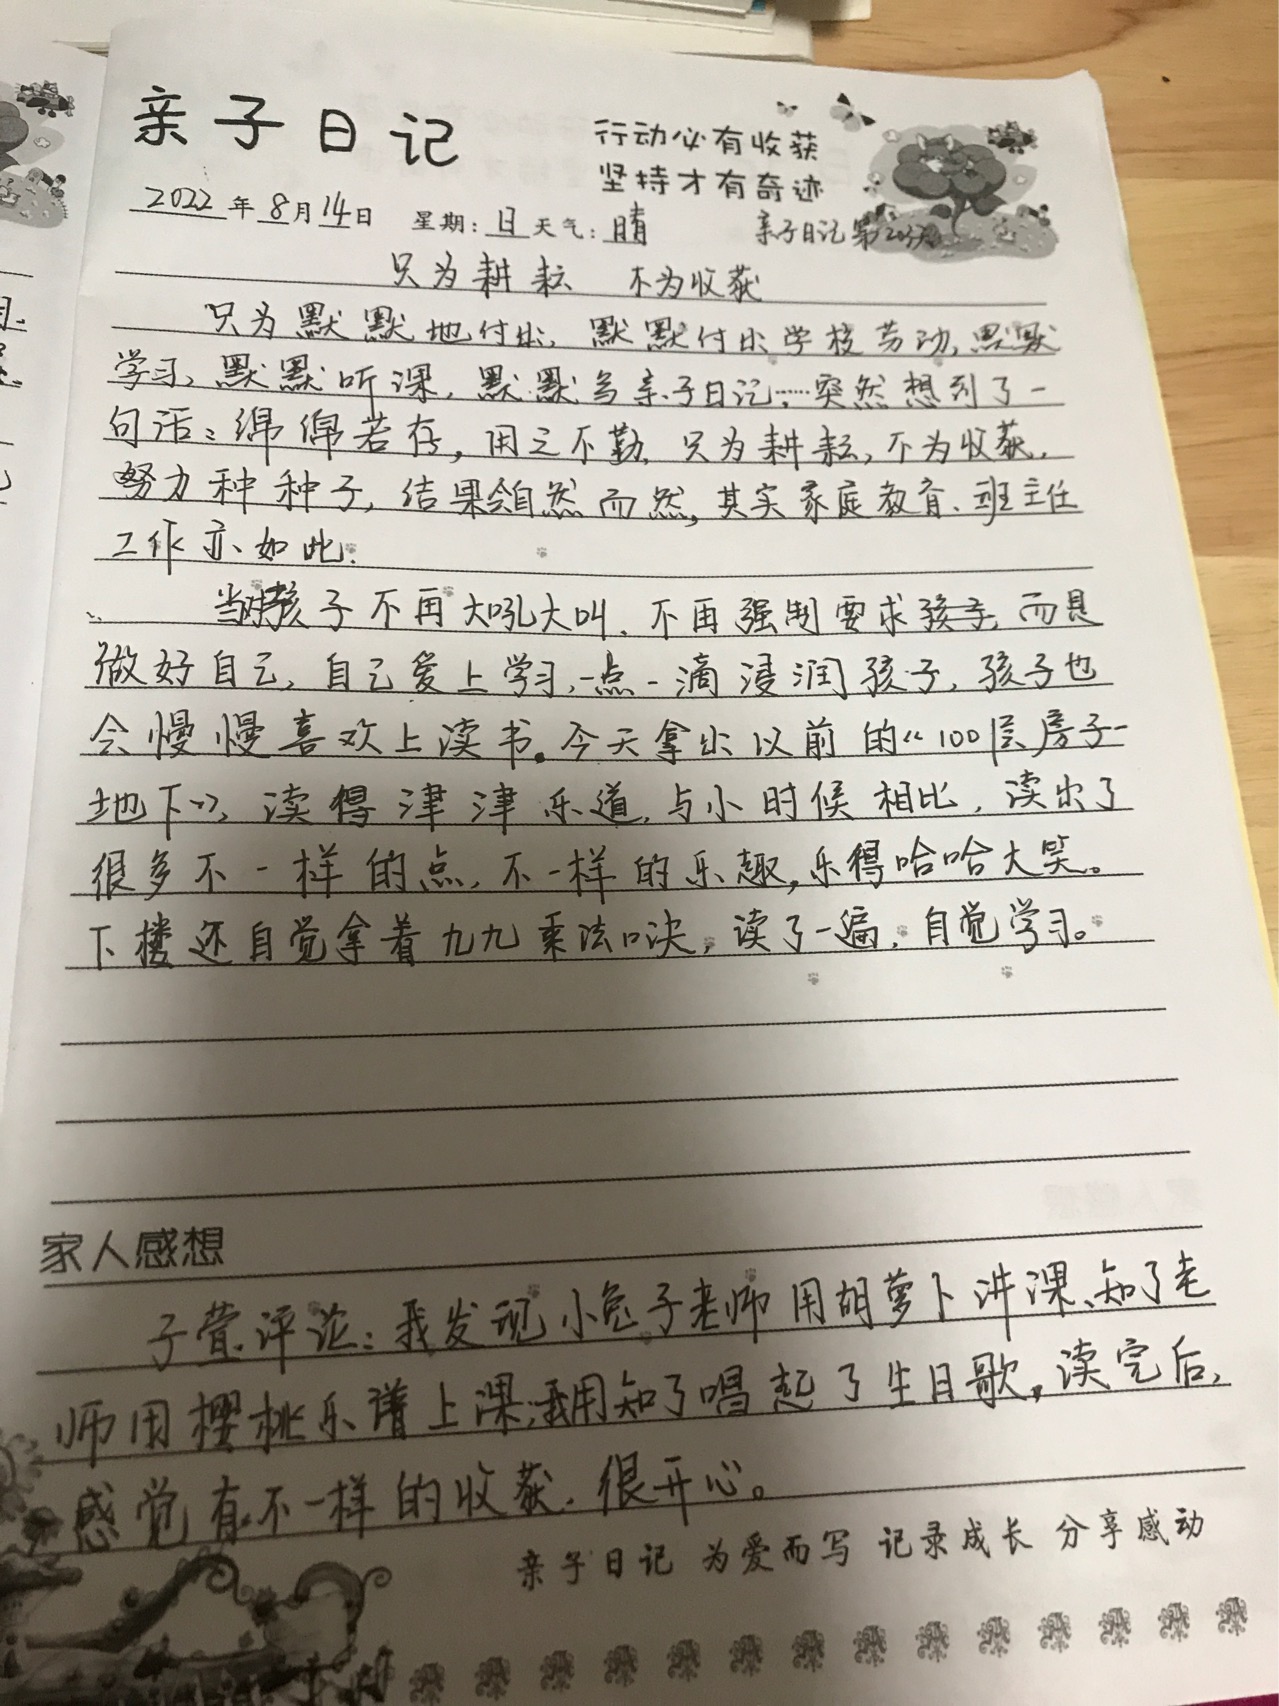 亲子日记
行动必有收获
坚持才有奇迹
2022年8月14日 星期:日 天气:晴
亲子日记第203天
只为耕耘 不为收获
只为默默地付出,默默付出学校劳动,默默
学习、默默听课,默默写亲子日记……突然想到了一
句话:绵绵若存,用之不勤,只为耕耘,不为收获,
努力种种子,结果会自然而然,其实家庭教育、班主任
工作亦如此.
当对孩子不再大吼大叫、不再强制要求孩子,而是
做好自己,自己爱上学习,一点一滴浸润孩子,孩子也
会慢慢喜欢上读书。今天拿出以前的“100层房子-
地下”,读得津津乐道,与小时候相比,读出了
很多不一样的点,不一样的乐趣,乐得哈哈大笑。
下楼还自觉拿着九九乘法口决,读了一遍,自觉学习。
家人感想
子萱评论:我发现小兔子老师用胡萝卜讲课、知了老
师用樱桃乐谱上课;我用知了唱起了生日歌。读完后,
感觉有不一样的收获,很开心。
亲子日记 为爱而写 记录成长 分享感动